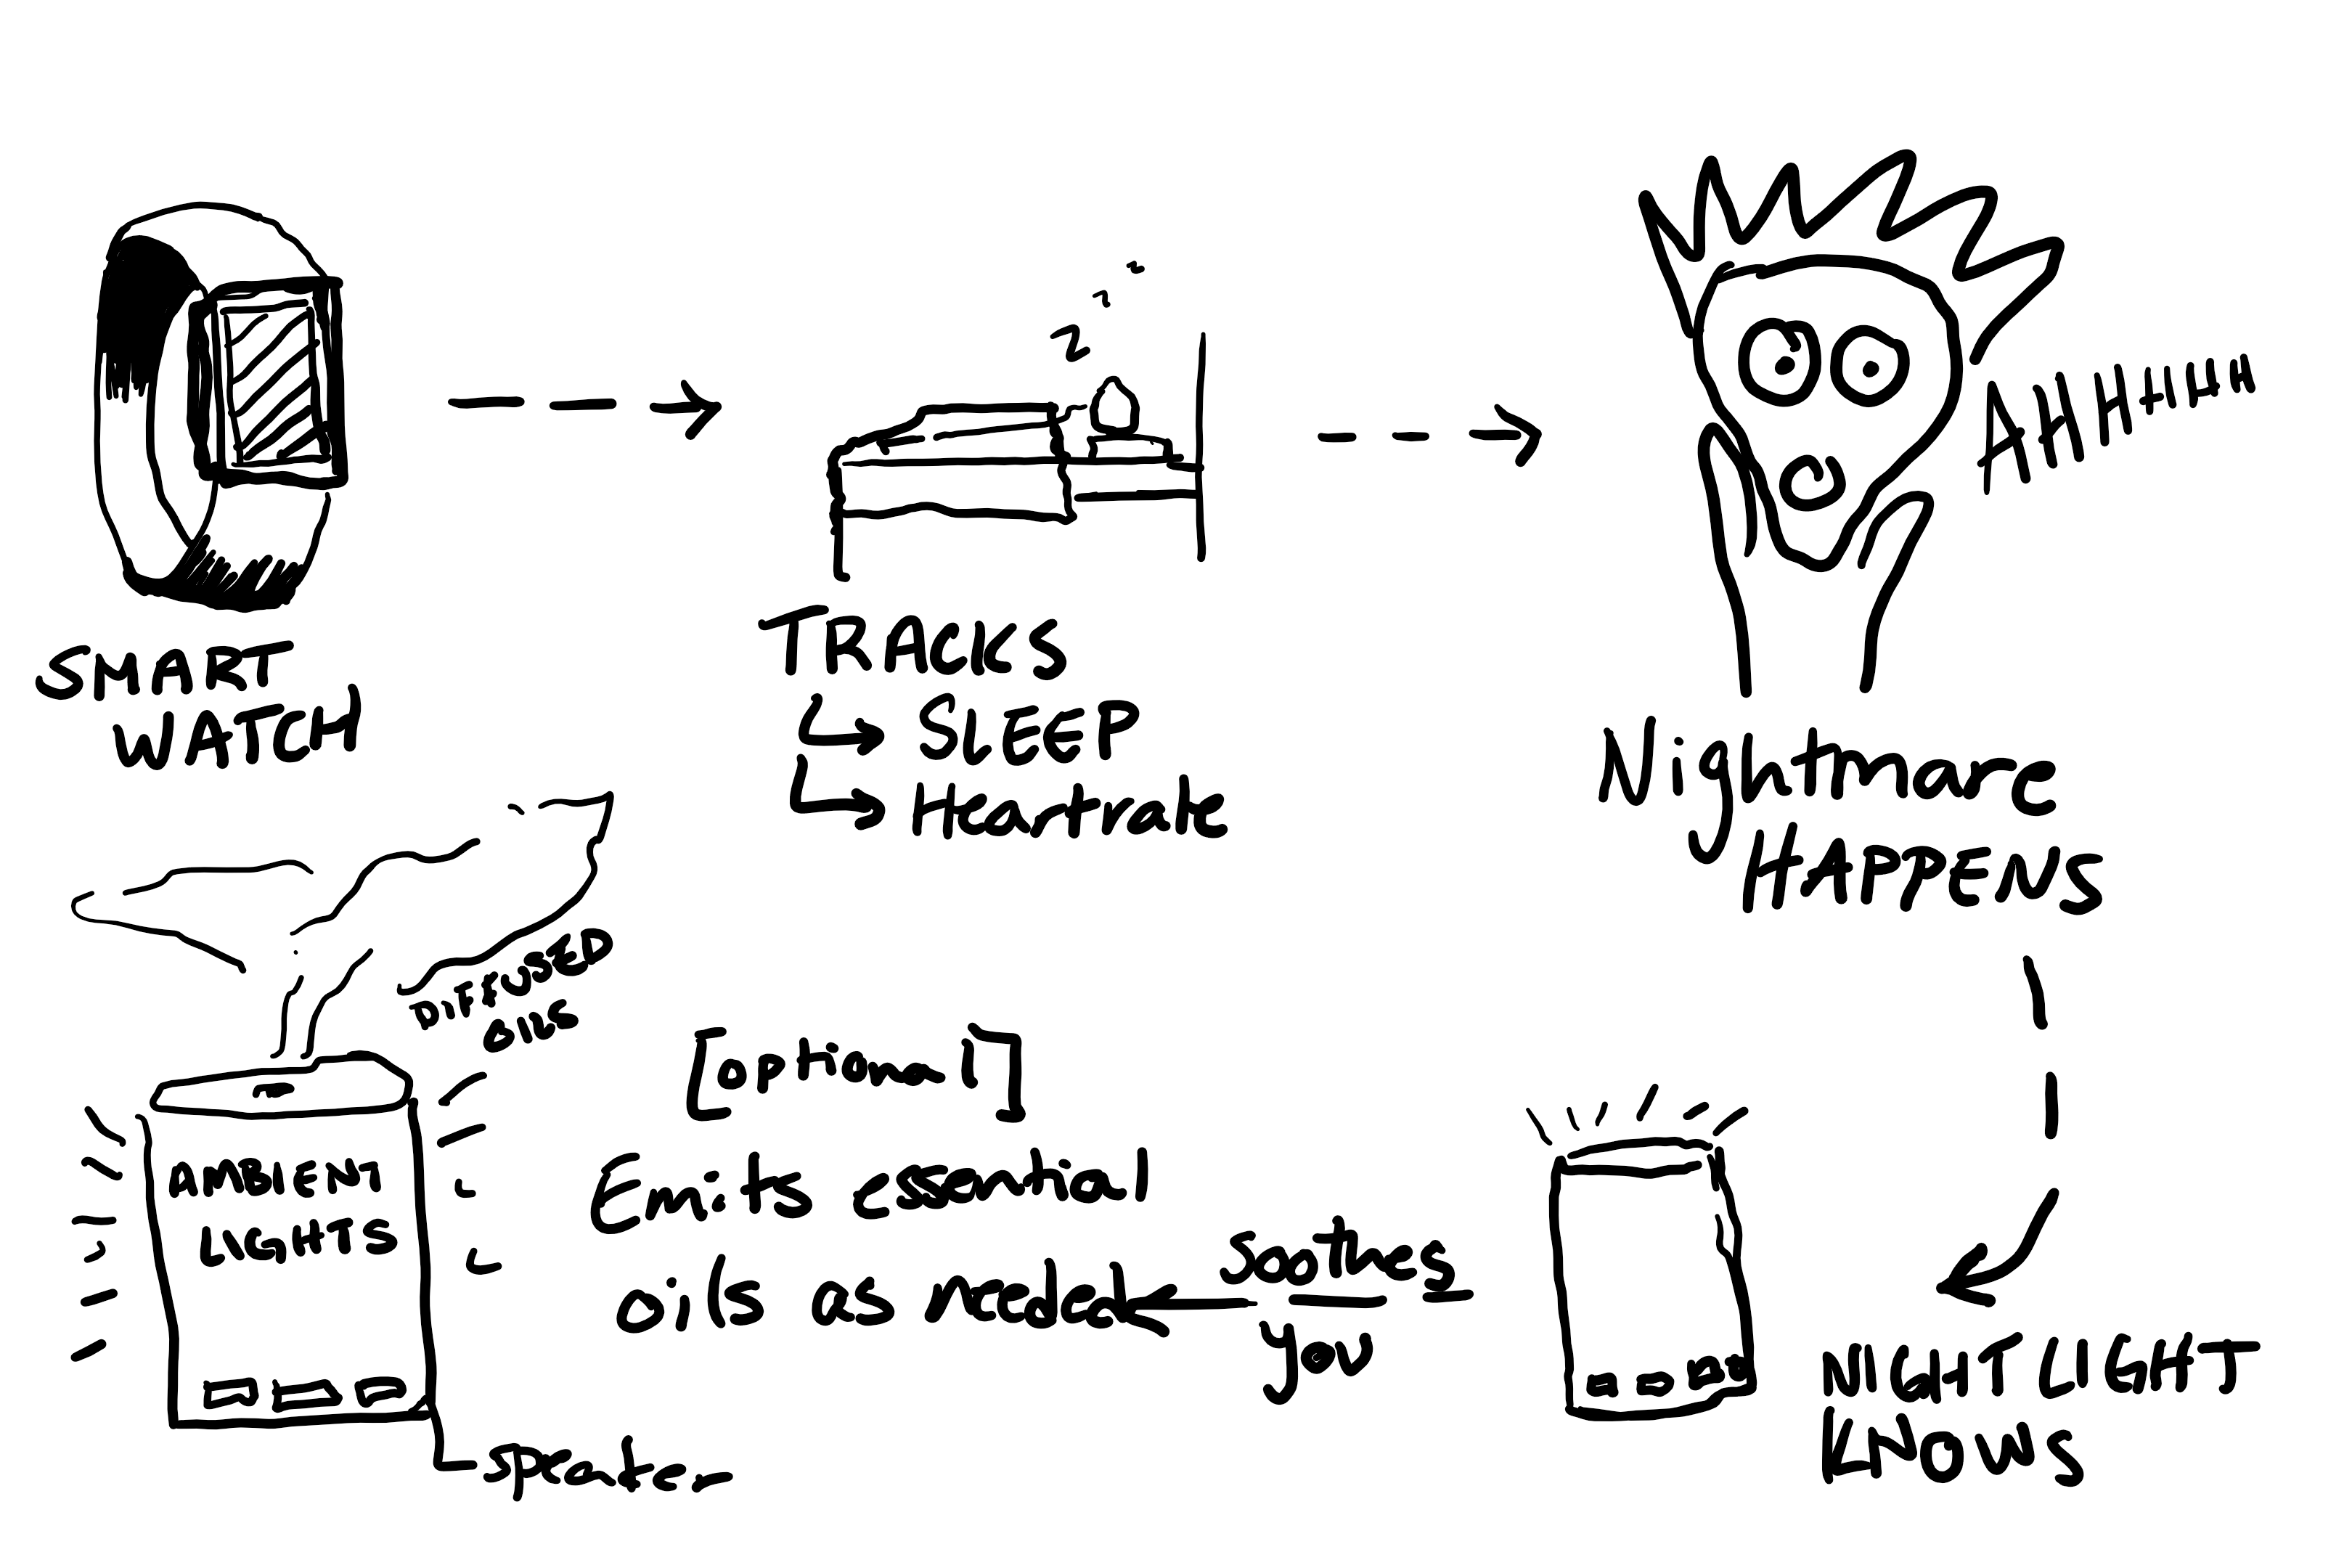 AHHHHHHH
SMART
WATCH
TRACKS
SLEEP
Heartrate
Nightmare
HAPPENS
DIFFUSED
OILS
[optional]
Emits essential
oils as needed
soothes
you
AMBIENT
LIGHTS
speaker
NIGHT LIGHT
KNOWS